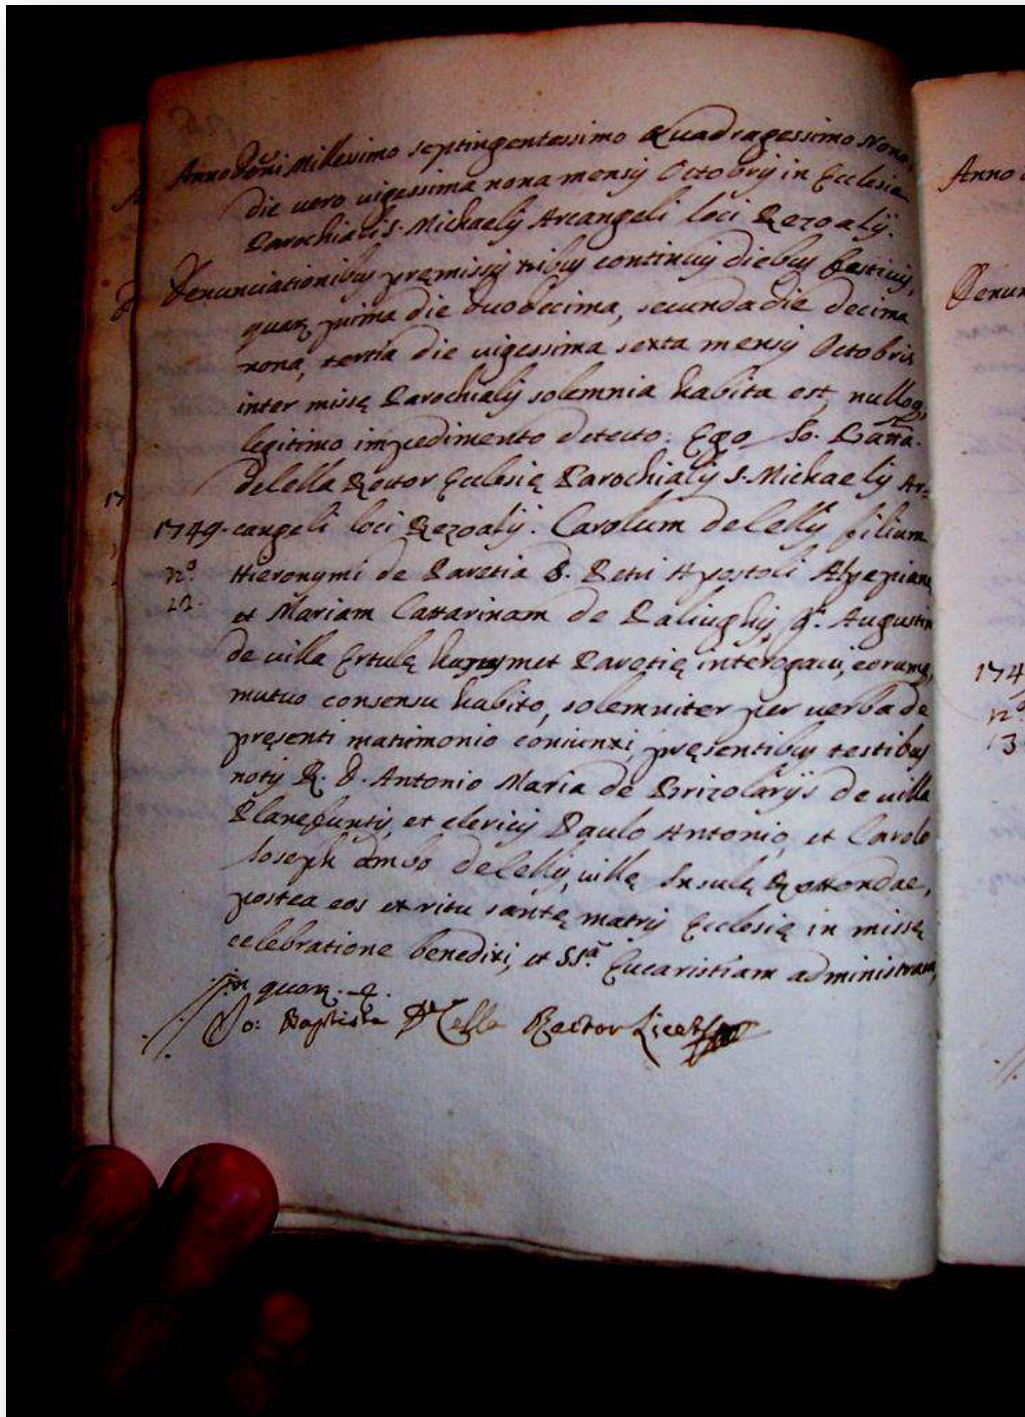 Anno Dñi Millesimo septingentessimo Quadragessimo Nono,
die vero vigessima nona mensis Octobris in Ecclesia
Parochiali S. Michaelis Arcangeli loci Rezoalij.
Denunciationibus premissis tribus continuis diebus festivis,
quarum prima die duodecima, secunda die decima
nona, tertia die vigessima sexta mensis Octobris
inter missę Parochialis solemnia habita est, nulloq.
legitimo impedimento detecto. Ego Jo. Batta.
delella Rector Ecclesię Parochialis S. Michaelis Ar=
1749. cangeli loci Rezoalij. Carolum de Cellis filium
nº. Hieronymi de Paretia S. Petri Apostoli Alpepianę
12. et Mariam Cattarinam de Raliughis q. Augustin
de villa Ertulę huiusmet Paretię interogavi, eorumq.
mutuo consensu habito, solemniter per verba de
pręsenti matrimonio coniunxi, pręsentibus testibus
notis R. D. Antonio Maria de Brizolarijs de villa
Planefuntis, et clericis Paulo Antonio, et Carolo
Joseph ambo de Cellis, villę Insulę Rottondae,
postea eos ex ritu santę matris Ecclesię in missę
celebratione benedixi, et SSª. Eucaristiam administravi,
In quorum. &.
Jo: Baptista De Cella Rector
Anno
Denun
174
nº
13
17